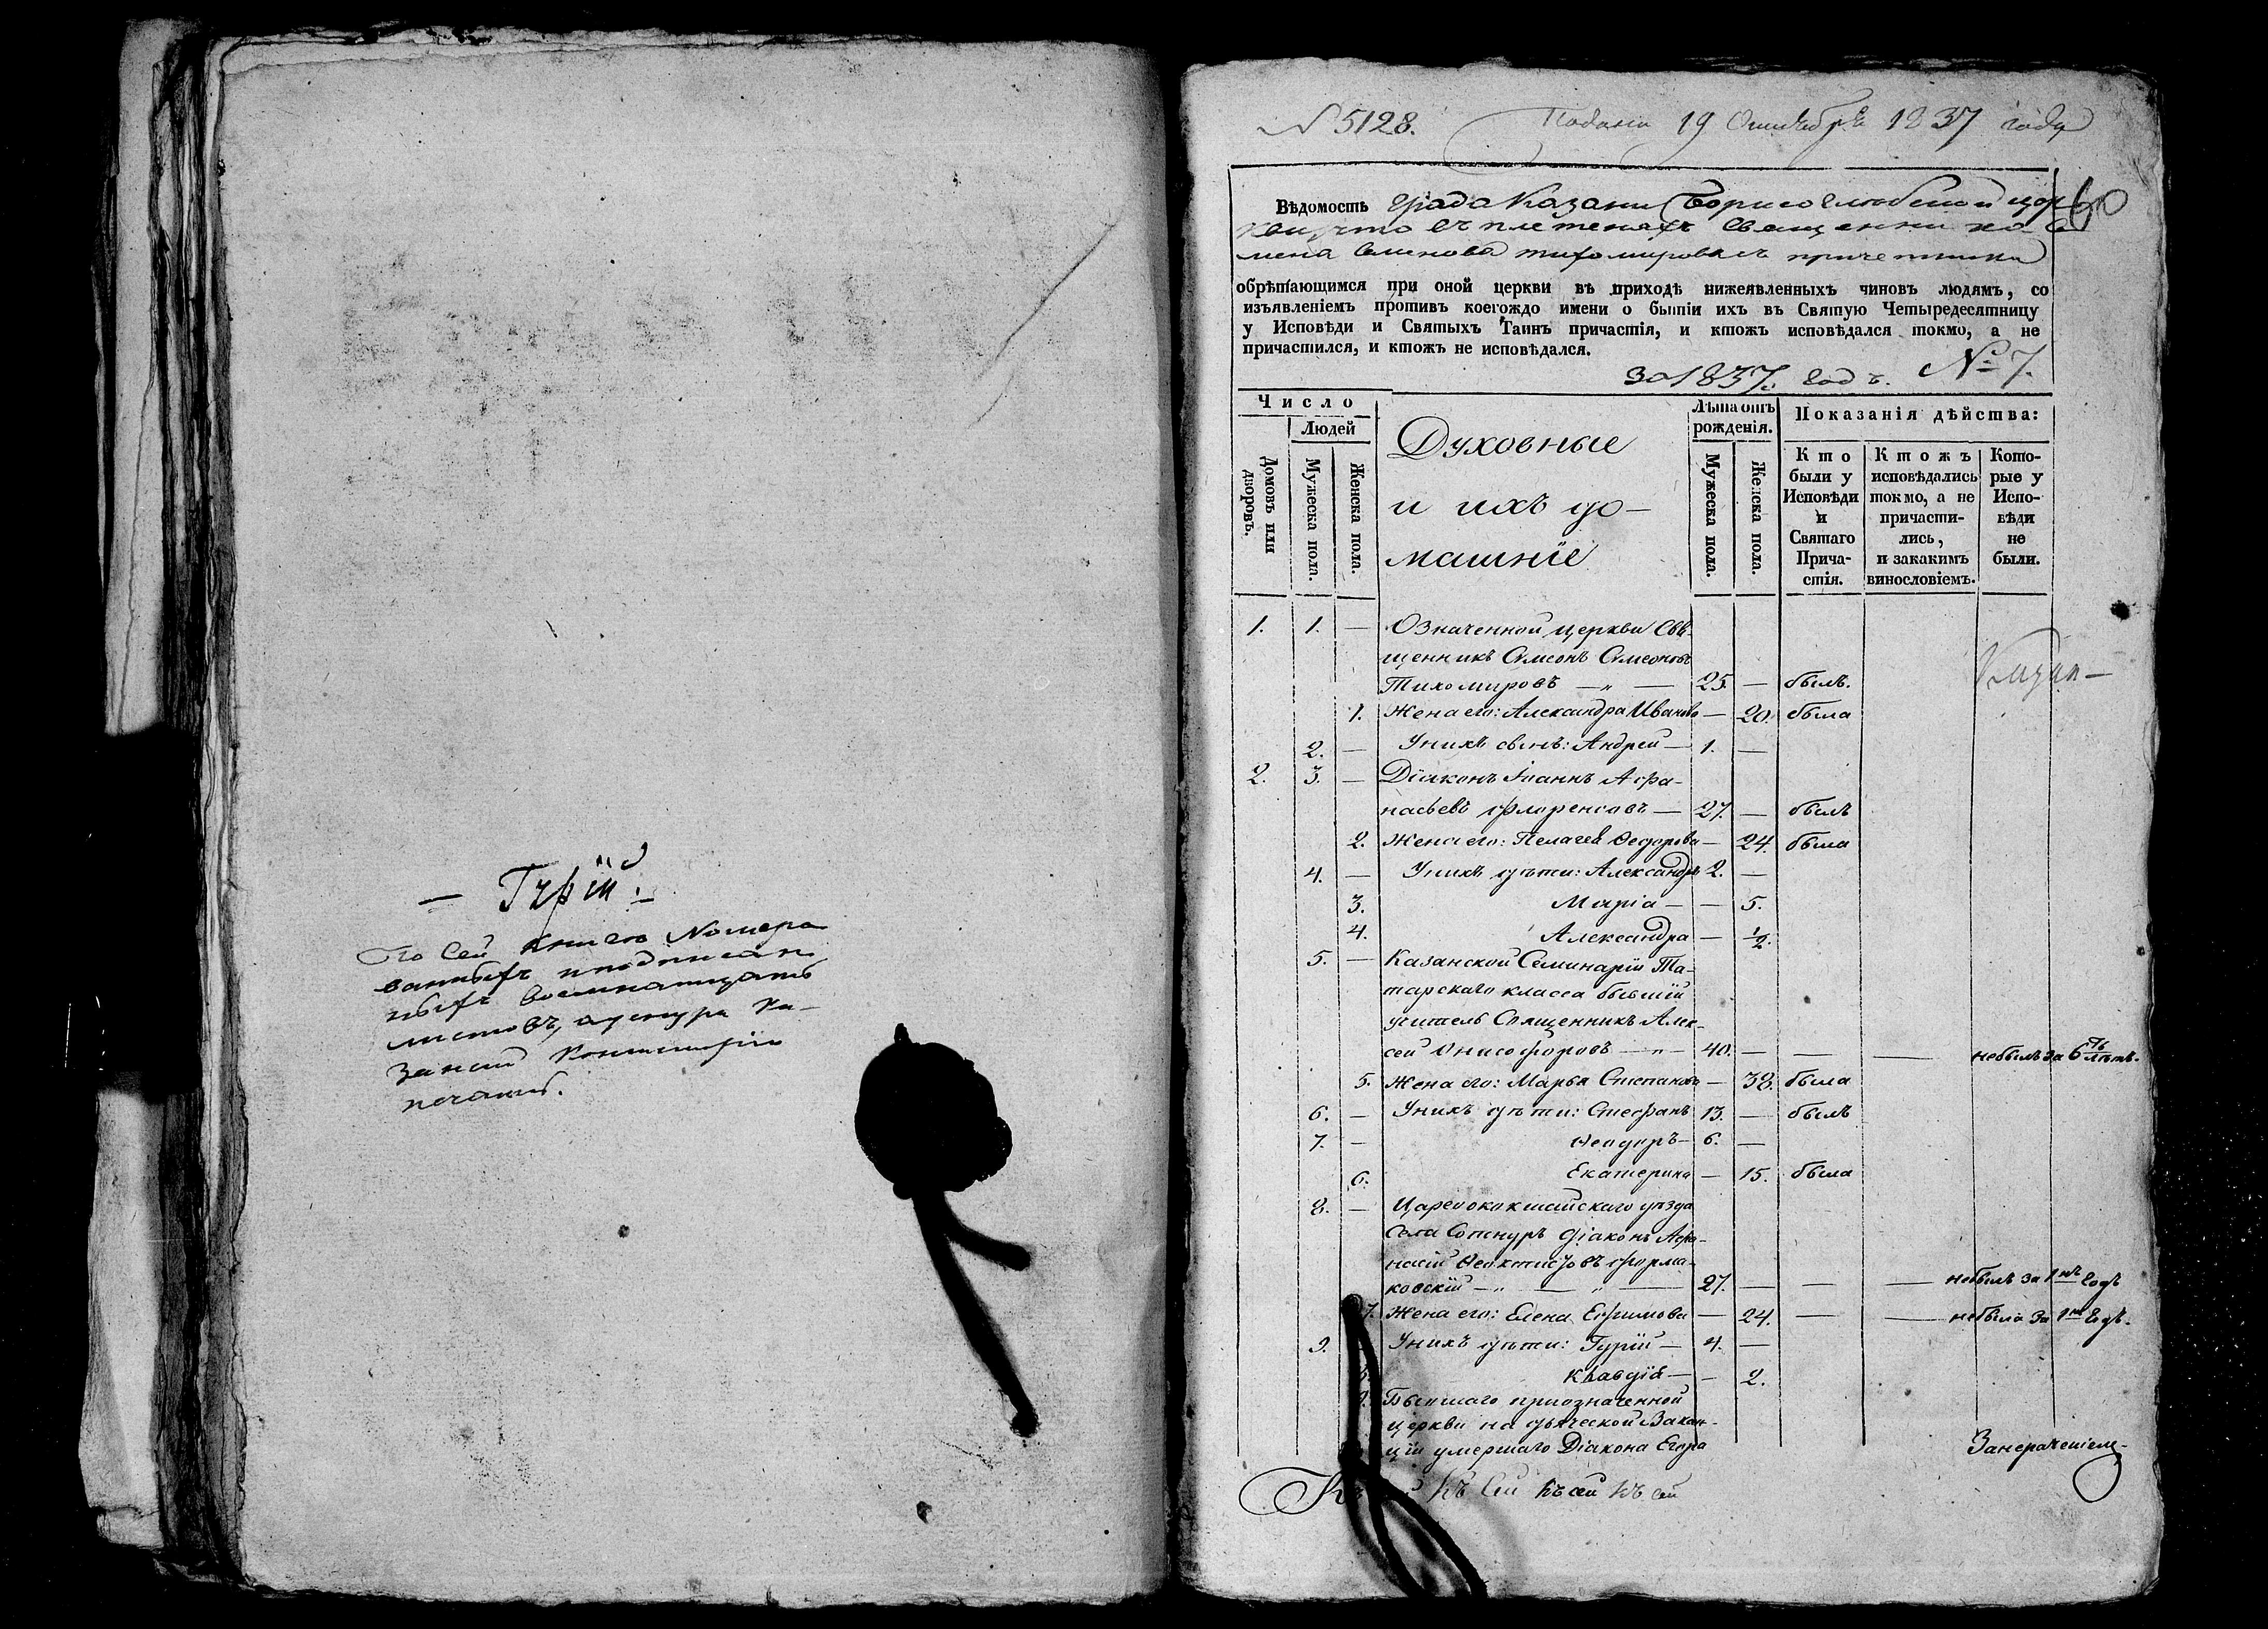 Гурій
По сей книге Номеро
ванныхъ и подписан
ныхъ восемнатцать
листовъ, а у снура Ка-
занской Консисторіи
печать.
N 5128.
Подана 19 Октября 1837 года
Вѣдомость града Казани Борисоглебской цер
кви, что въ плетеняхъ Священника
Семенова тихомирова съ причетники
60
обрѣтающимся при оной церкви въ приходѣ нижеявленныхъ чиновъ людямъ, со
изъявленіемъ противъ коегождо имени о бытіи ихъ въ Святую Четыредесятницу
у Исповѣди и Святыхъ Таинъ причастія, и ктожъ исповѣдался токмо, а не
причастился, и ктожъ не исповѣдался.
За 1837. годъ. № 7.
Число
Людей
Домовъ или дворовъ.
Мужеска пола.
Женска пола.
Духовные
и ихъ до-
машніе
Лѣта отъ рожденія.
Мужеска пола.
Женска пола.
Показанія дѣйства:
Кто были у Исповѣди и Святаго Прича-стія.
Ктожъ исповѣдались токмо, а не причасти-лись, и закакимъ винословіемъ.
Кото-рые у Испо-вѣди не были.
1. 1. — Означенной церкви Свя-
щенникъ Симеонъ Симеоновъ
Тихомировъ — „ — 25. — былъ.
1. Жена его: Александра Иванова — 20. была
2. — У нихъ сынъ: Андрей — 1. —
2. 3. — Діаконъ Іоаннъ Афа-
насьевъ Флоренсовъ — 27. — былъ
2. Жена его: Пелагея Ѳедорова — 24. была
4. — У нихъ дѣти: Александръ 2. —
3. Марія — — 5.
4. Александра — ½.
5. — Казанской Семинаріи Та-
тарскаго класса бывшій
учитель Священникъ Алек-
сей Онисифоровъ — „ — 40. — — — небылъ за 6ть лѣтъ.
5. Жена его: Марья Степанова — 38. была
6. — У нихъ дѣти: Стефанъ 13. — былъ
7. — Ѳеодоръ — 6. —
6. Екатерина — 15. была
8. — Царевококшайскаго уѣзда
Села Сотнуръ Діаконъ Афа-
насій Ѳеоктистовъ Форма-
ковскій — „ — „ — 27. — — — небылъ за 1нъ годъ
7. Жена его: Елена Ефимова — 24. — — небыла за 1нъ годъ.
9. У нихъ дѣти: Гурій — 4. —
Клавдія — — 2.
Бывшаго приозначенной
церкви на дьяческой Вакан-
ціи умершаго Діакона Егора
Занерачениемъ
Къ сей Къ сей Къ сей